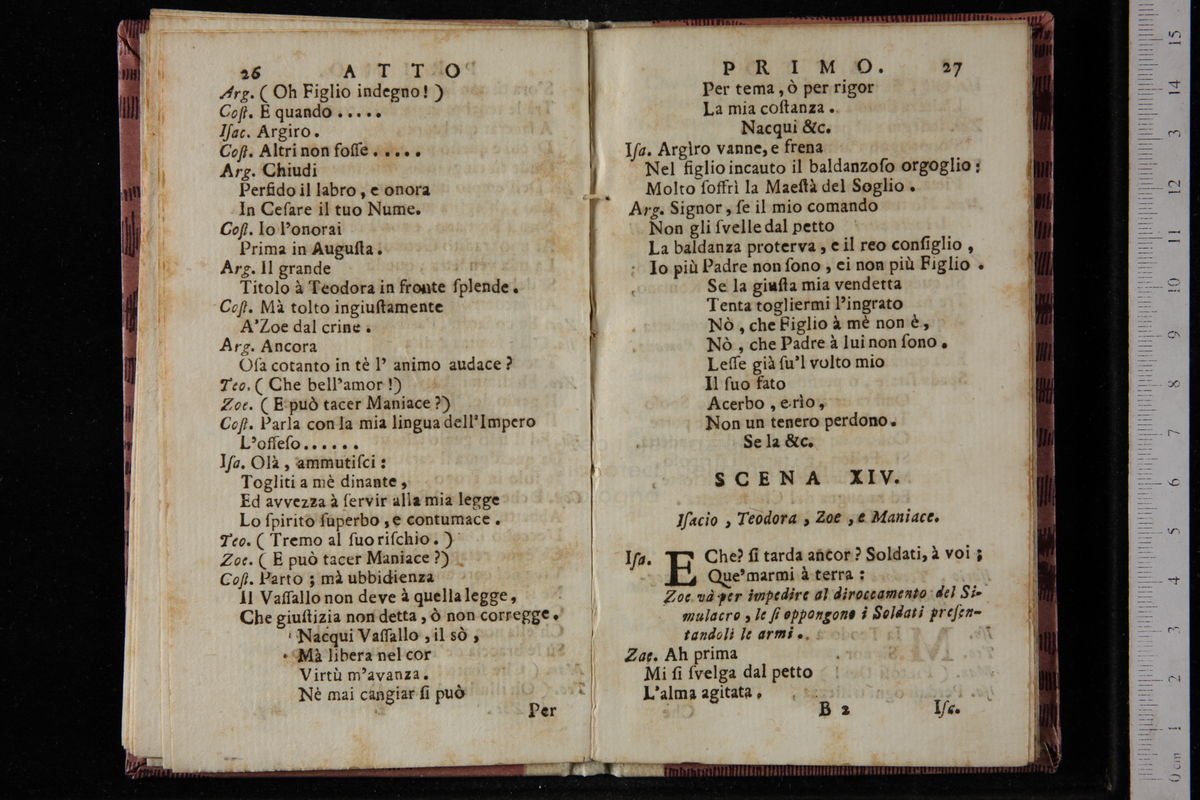 26 ATTO
Arg. ( Oh Figlio indegno! )
Coſt. E quando . . . . .
Iſac. Argiro.
Coſt. Altri non foſſe . . . . .
Arg. Chiudi
Perfido il labro, e onora
In Ceſare il tuo Nume.
Coſt. Io l'onorai
Prima in Auguſta.
Arg. Il grande
Titolo à Teodora in fronte ſplende.
Coſt. Mà tolto ingiuſtamente
A'Zoe dal crine.
Arg. Ancora
Oſa cotanto in tè l' animo audace?
Teo. ( Che bell'amor!)
Zoe. ( E può tacer Maniace?)
Coſt. Parla con la mia lingua dell'Impero
L'offeſo . . . . . .
Iſa. Olà, ammutiſci:
Togliti a mè dinante,
Ed avvezza à ſervir alla mia legge
Lo ſpirito ſuperbo, e contumace.
Teo. ( Tremo al ſuo riſchio. )
Zoe. ( E può tacer Maniace?)
Coſt. Parto; mà ubbidienza
Il Vaſſallo non deve à quella legge,
Che giuſtizia non detta, ò non corregge.
Nacqui Vaſſallo, il sò,
Mà libera nel cor
Virtù m'avanza.
Nè mai cangiar ſi può
Per
PRIMO. 27
Per tema, ò per rigor
La mia coſtanza.
Nacqui &c.
Iſa. Argìro vanne, e frena
Nel figlio incauto il baldanzoſo orgoglio:
Molto ſoffrì la Maeſtà del Soglio.
Arg. Signor, ſe il mio comando
Non gli ſvelle dal petto
La baldanza proterva, e il reo conſiglio,
Io più Padre non ſono, ei non più Figlio.
Se la giuſta mia vendetta
Tenta togliermi l'ingrato
Nò, che Figlio à mè non è,
Nò, che Padre à lui non ſono.
Leſſe già ſu'l volto mio
Il ſuo fato
Acerbo, e rìo,
Non un tenero perdono.
Se la &c.
SCENA XIV.
Iſacio, Teodora, Zoe, e Maniace.
Iſa. E Che? ſi tarda ancor? Soldati, à voi;
Que'marmi à terra:
Zoe và per impedire al diroccamento del Si-
mulacro, le ſi oppongono i Soldati preſen-
tandoli le armi.
Zoe. Ah prima
Mi ſi ſvelga dal petto
L'alma agitata.
B 2 Iſa.